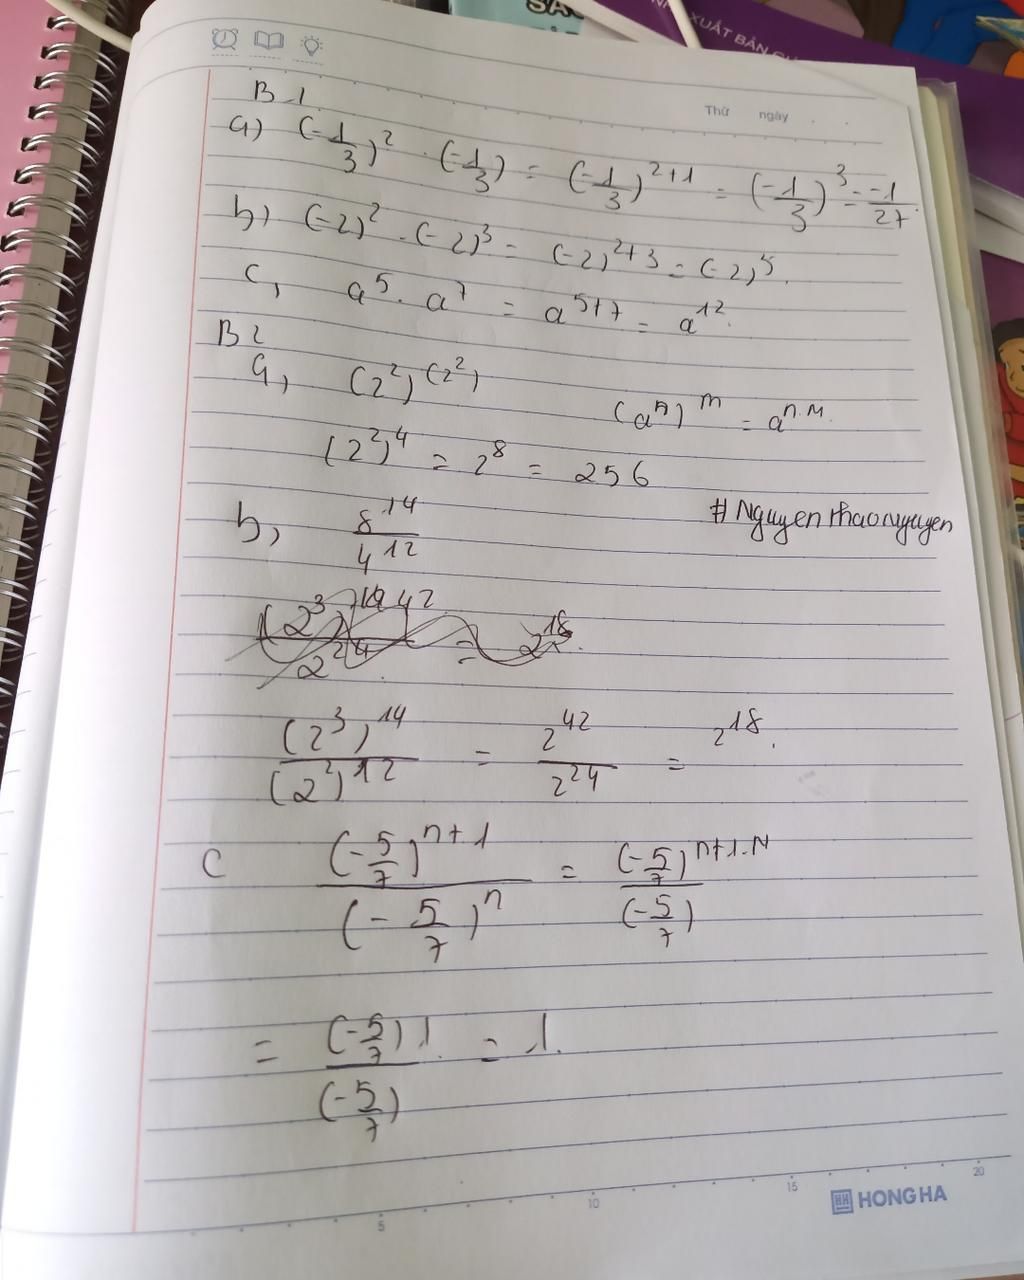 SÁ
XUẤT BẢN
Thứ ngày
B1
a) (-1/3)² . (-1/3) = (-1/3)²⁺¹ = (-1/3)³ = -1/27
b) (-2)² . (-2)³ = (-2)²⁺³ = (-2)⁵.
c, a⁵ . a⁷ = a⁵⁺⁷ = a¹².
B2
a, (2²)^(2²)
(aⁿ)ᵐ = aⁿ·ᵐ
(2²)⁴ = 2⁸ = 256
# Nguyenthaonguyen
b, 8¹⁴/4¹²
(2³)¹⁴/(2²)¹² = 2⁴²/2²⁴ = 2¹⁸.
C (-5/7)ⁿ⁺¹/(-5/7)ⁿ = (-5/7)ⁿ⁺¹⁻ᴺ/(-5/7)
= (-5/7)1/(-5/7) = 1.
5 10 15 20
HH HONG HA